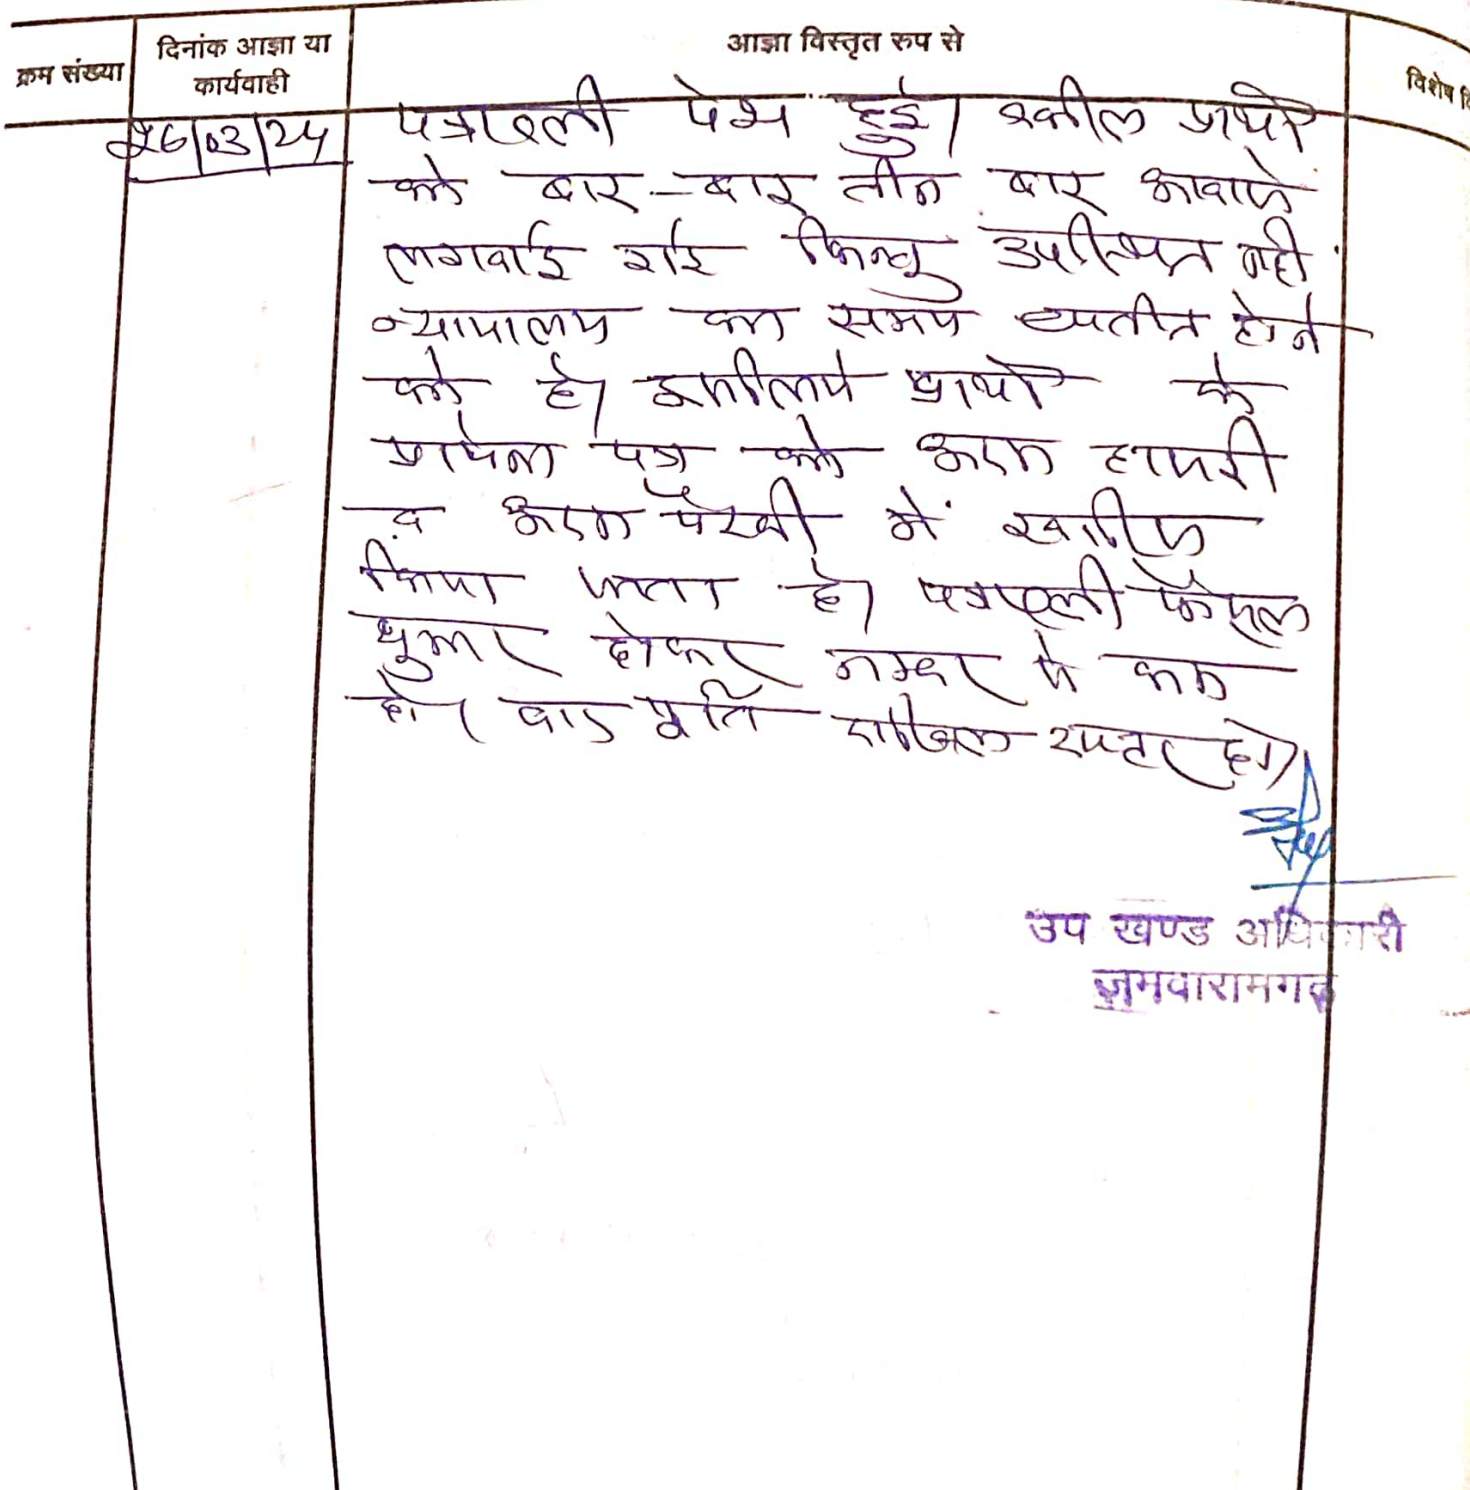 क्रम संख्या
दिनांक आज्ञा या
कार्यवाही
आज्ञा विस्तृत रुप से
विशेष
26/03/24
पत्रावली पेश हुई। वकील प्रार्थी
को बार-बार तीन बार आवाजे
लगवाई गई किन्तु उपस्थित नही
न्यायालय का समय व्यतीत होने
को है। इसलिये प्रार्थी के
प्रार्थना पत्र को अदम हाजरी
व अदम पैरवी में खारीज
किया जाता है। पत्रावली फैसल
शुमार होकर नम्बर से कम
हो। बाद पूर्ति दाखिल दफ्तर हो।
उप खण्ड अधिकारी
जमवारामगढ